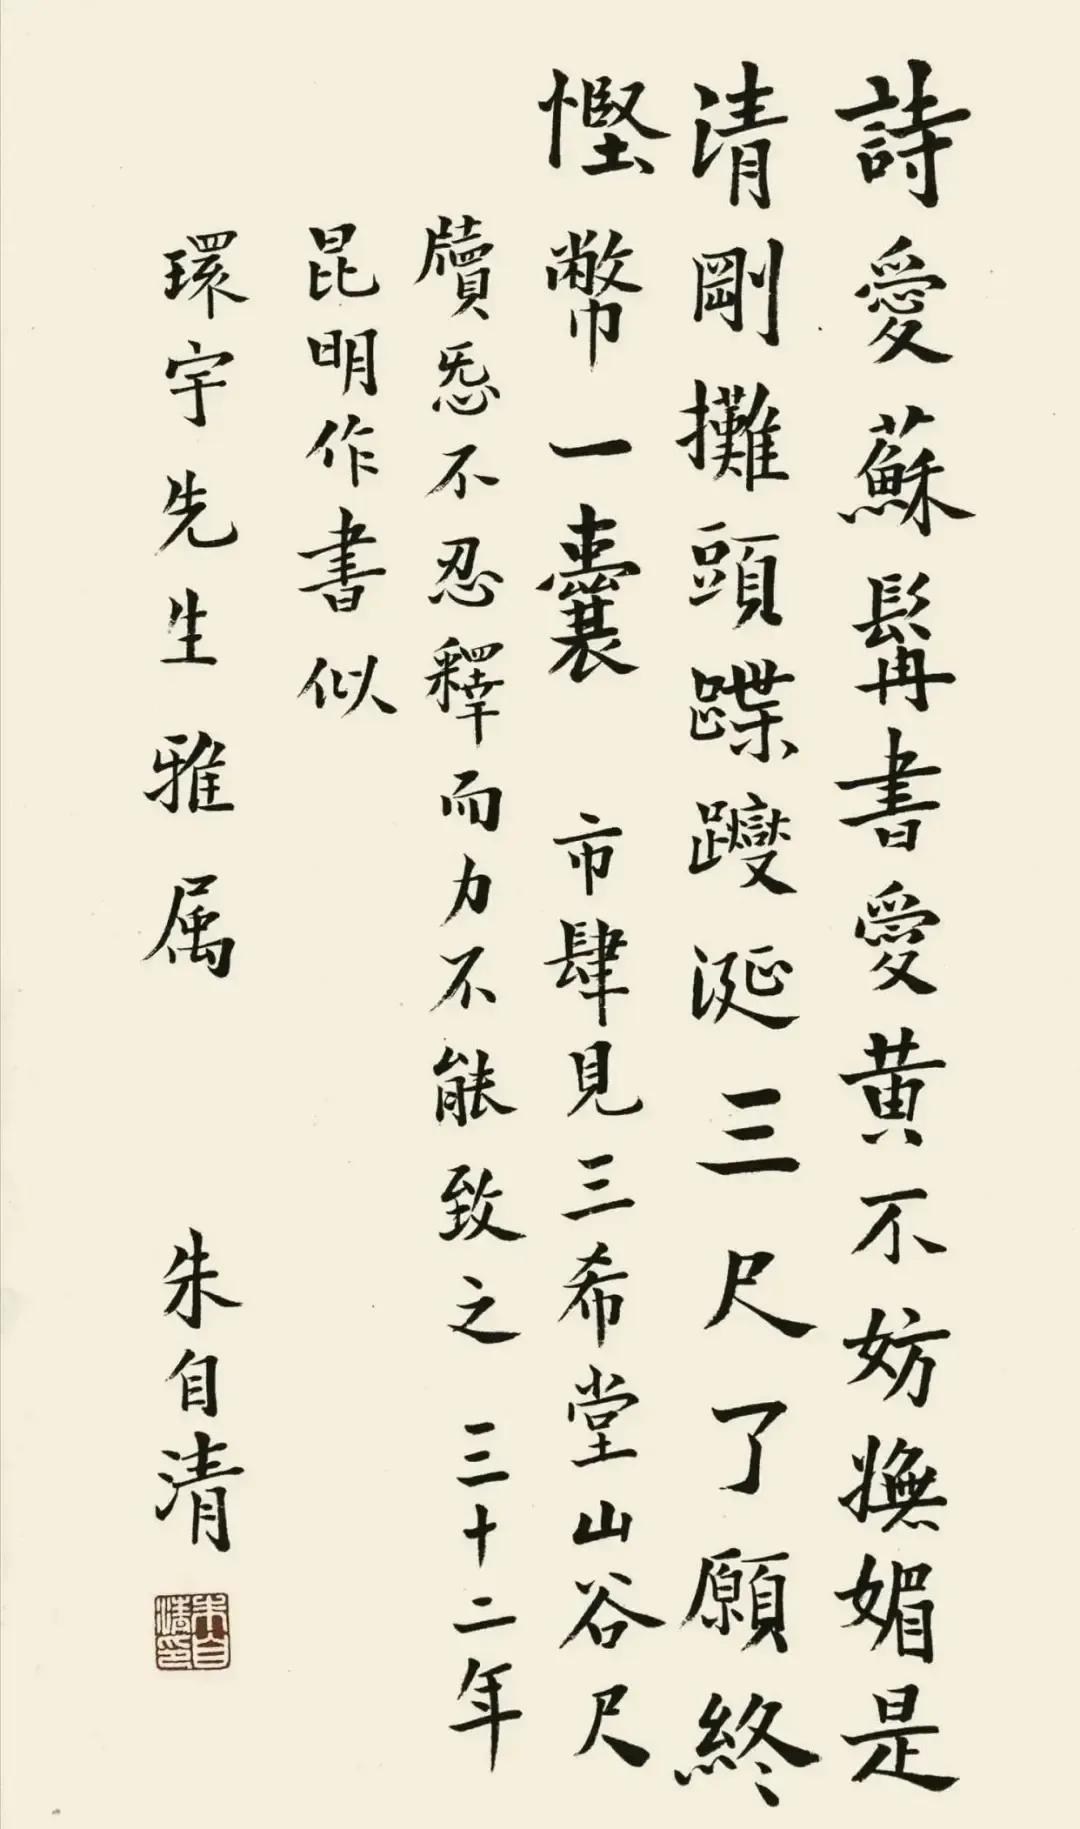 詩愛蘇髯書愛黄不妨嫵媚是
清剛攤頭蹀躞涎三尺了願終
慳幣一囊 市肆見三希堂山谷尺
牘㤅不忍釋而力不能致之 三十二年
昆明作書似
環宇先生雅属 朱自清
朱自清印